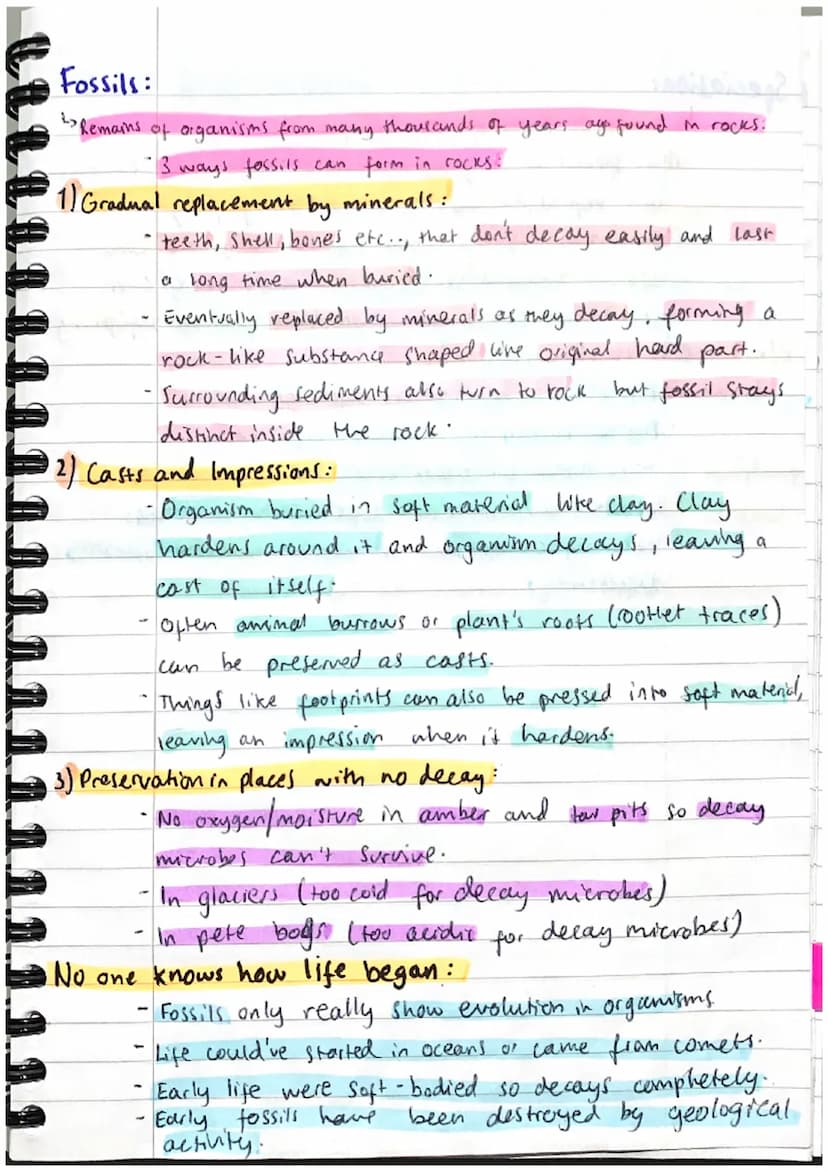 Fossils:
↳ Remains of organisms from many thousands of years ago found in rocks.
- 3 ways fossils can form in rocks:
1) Gradual replacement by minerals:
- teeth, shell, bones etc.., that don't decay easily and last
a long time when buried.
- Eventually replaced by minerals as they decay, forming a
rock-like substance shaped like original hard part.
- Surrounding sediments also turn to rock but fossil stays
distinct inside the rock.
2) Casts and Impressions:
- Organism buried in soft material like clay. Clay
hardens around it and organism decays, leaving a
cast of itself.
- Often animal burrows or plant's roots (rootlet traces)
can be preserved as casts.
- Things like footprints can also be pressed into soft material,
leaving an impression when it hardens.
3) Preservation in places with no decay:
- No oxygen/moisture in amber and tar pits so decay
microbes can't survive.
- In glaciers (too cold for decay microbes)
- In pete bogs (too acidic for decay microbes)
No one knows how life began:
- Fossils only really show evolution in organisms
- Life could've started in oceans or came from comets.
- Early life were soft-bodied so decays completely.
- Early fossils have been destroyed by geological
activity.